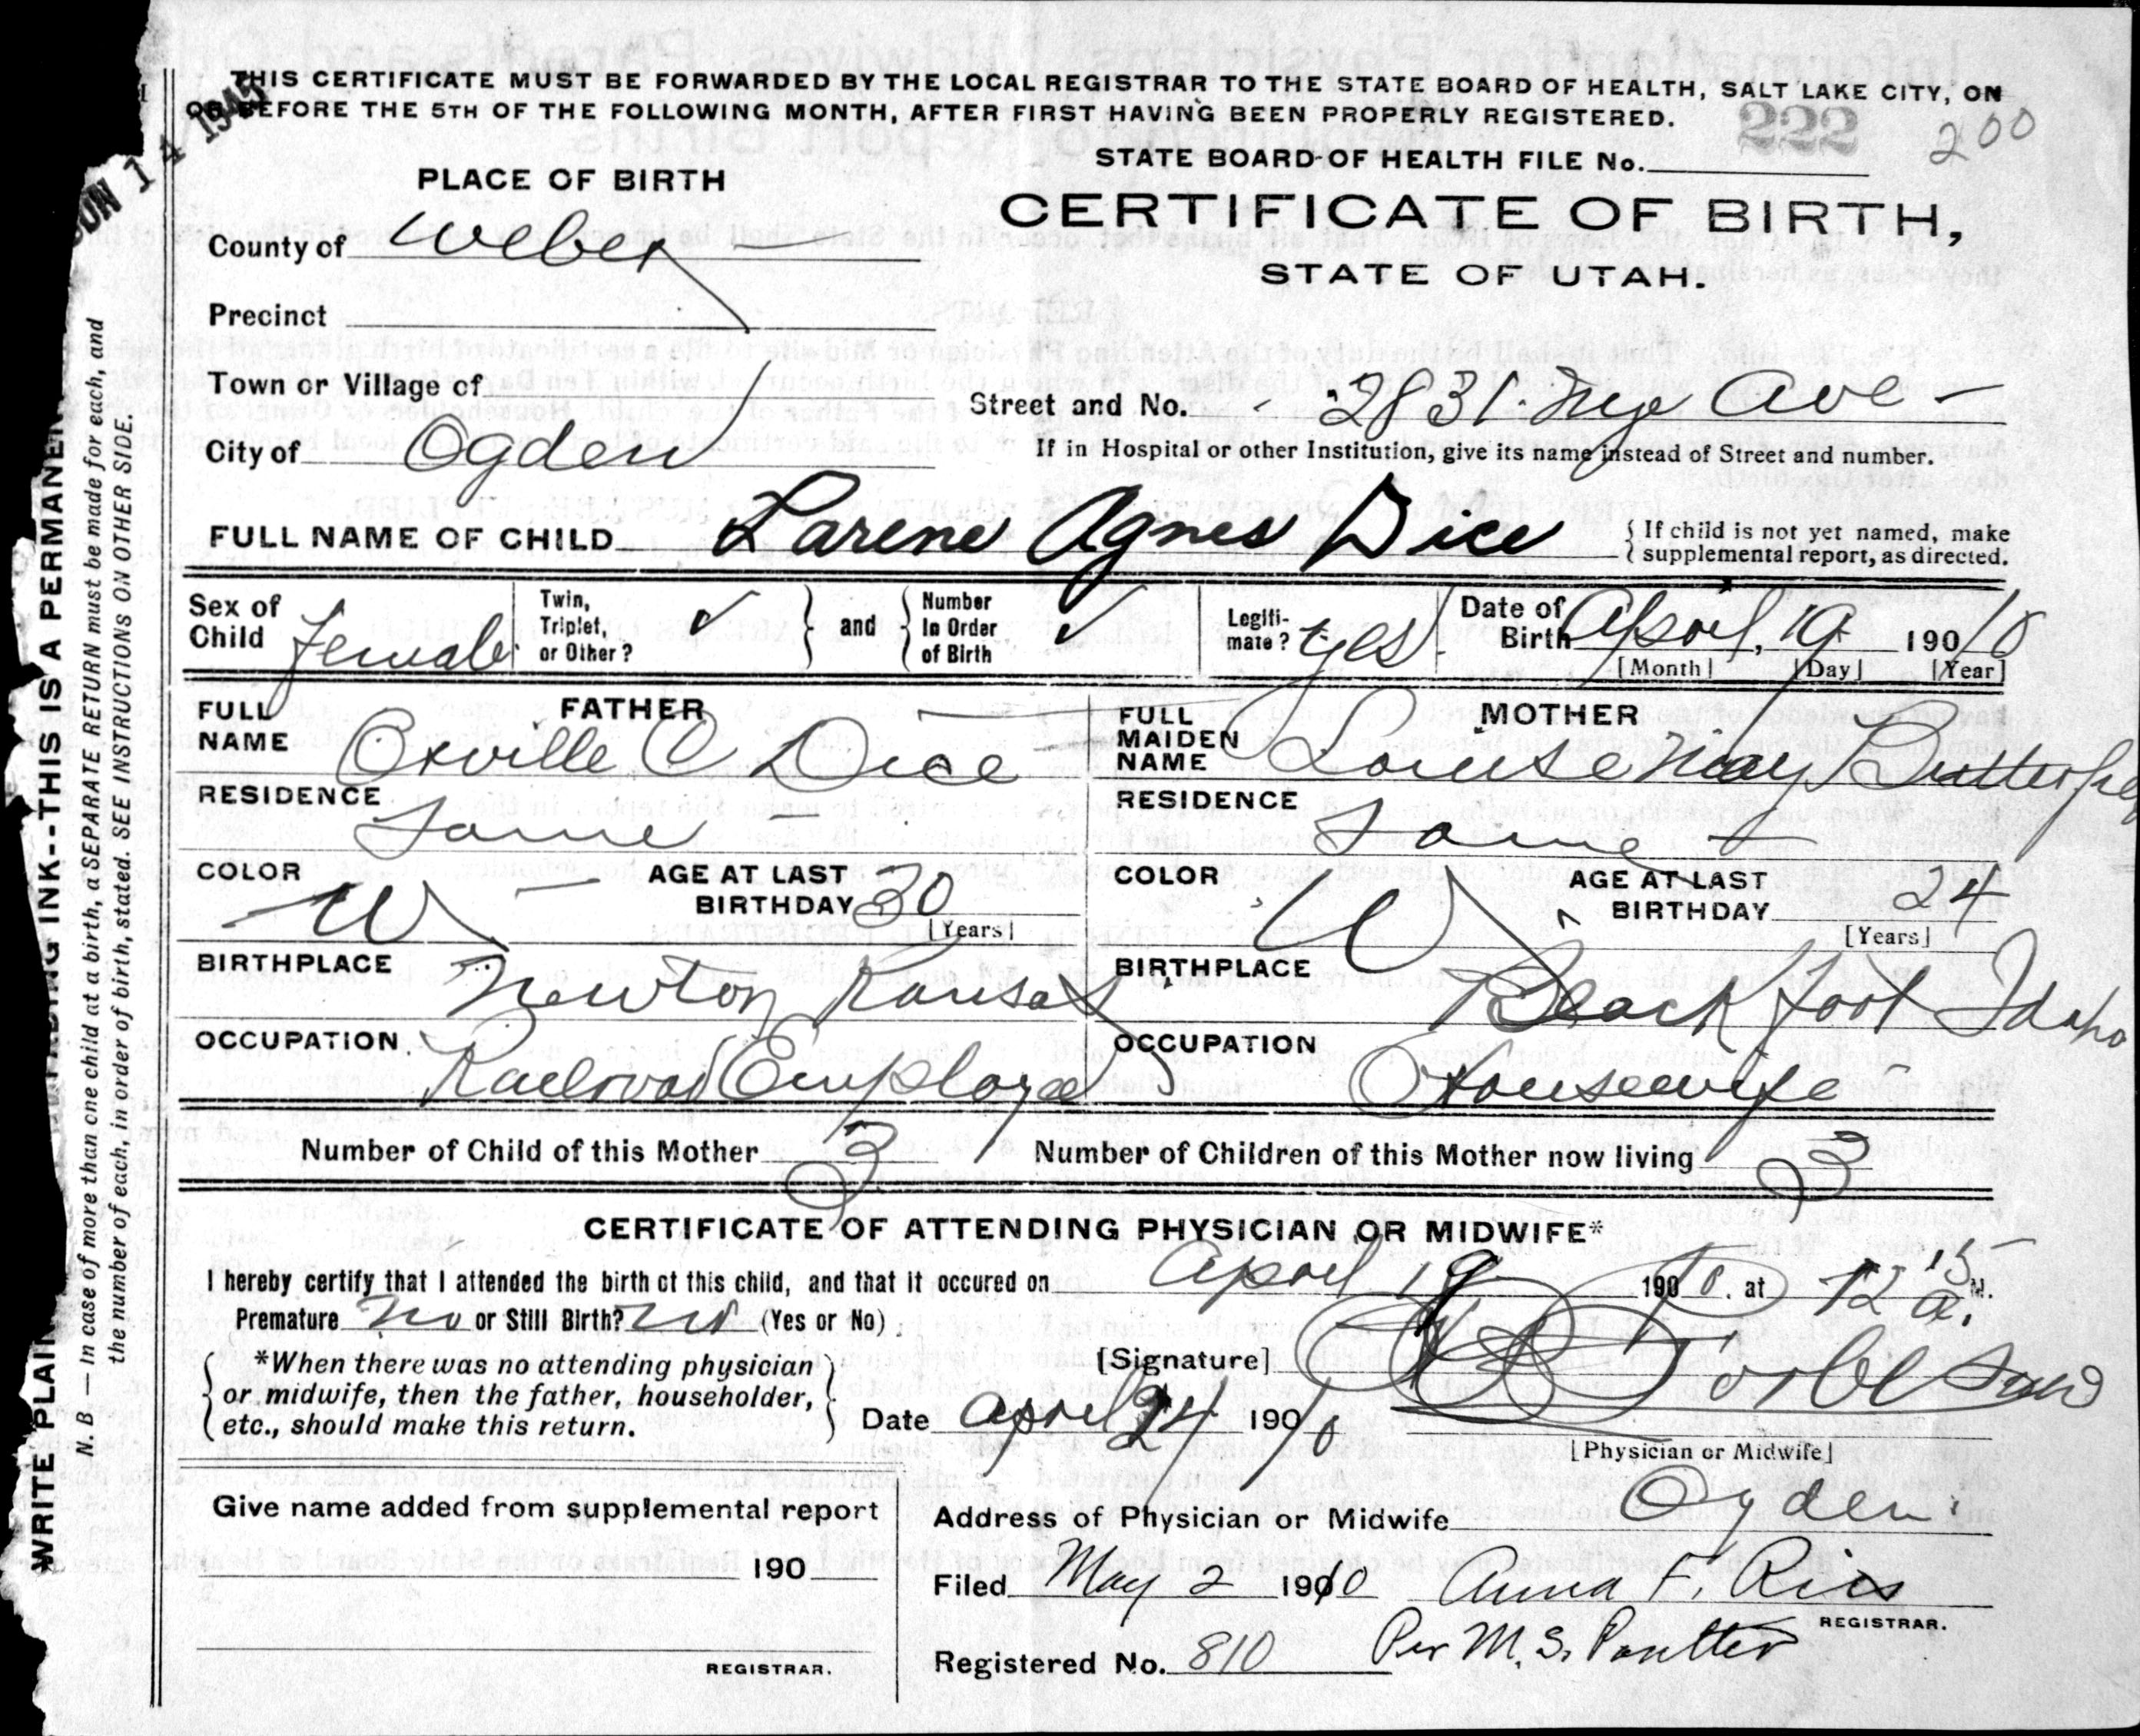 THIS CERTIFICATE MUST BE FORWARDED BY THE LOCAL REGISTRAR TO THE STATE BOARD OF HEALTH, SALT LAKE CITY, ON
OR BEFORE THE 5TH OF THE FOLLOWING MONTH, AFTER FIRST HAVING BEEN PROPERLY REGISTERED.
JUN 14 1945
222 200
STATE BOARD OF HEALTH FILE No.
PLACE OF BIRTH
CERTIFICATE OF BIRTH,
STATE OF UTAH.
County of Weber
Precinct
Town or Village of
Street and No. 2831 Nye Ave
City of Ogden
If in Hospital or other Institution, give its name instead of Street and number.
FULL NAME OF CHILD Larene Agnes Dice
{ If child is not yet named, make
supplemental report, as directed.
Sex of Child Female
Twin, Triplet, or Other? ✓ } and { Number In Order of Birth ✓
Legiti-mate? yes
Date of Birth April, 19 190/10
[Month] [Day] [Year]
FATHER
FULL NAME Orville C Dice
RESIDENCE Same
COLOR W
AGE AT LAST BIRTHDAY 30
[Years]
BIRTHPLACE Newton Kansas
OCCUPATION Railroad Employee
MOTHER
FULL MAIDEN NAME Louise May Butterfie
RESIDENCE Same
COLOR W
AGE AT LAST BIRTHDAY 24
[Years]
BIRTHPLACE Blackfoot Idaho
OCCUPATION Housewife
Number of Child of this Mother 3 Number of Children of this Mother now living 3
CERTIFICATE OF ATTENDING PHYSICIAN OR MIDWIFE*
I hereby certify that I attended the birth of this child, and that it occured on April 19 1910. at 12 15 a. M.
Premature no or Still Birth? no (Yes or No)
*When there was no attending physician
or midwife, then the father, householder,
etc., should make this return.
[Signature]
Date April 24 190/10
[Physician or Midwife]
Give name added from supplemental report
190
REGISTRAR.
Address of Physician or Midwife Ogden
Filed May 2 1910 Anna F. Ries
REGISTRAR.
Registered No. 810 Per M. S. Poulter
WRITE PLAIN
ING INK--THIS IS A PERMANEN
N. B — In case of more than one child at a birth, a SEPARATE RETURN must be made for each, and
the number of each, in order of birth, stated. SEE INSTRUCTIONS ON OTHER SIDE.